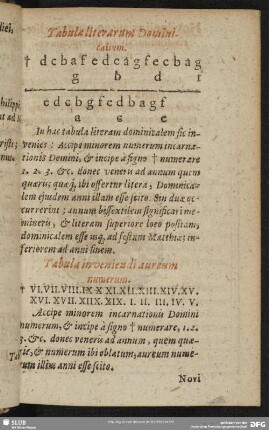 Tabula literarum Domini-
calium.
† dcbafedcagfecbag
g b d f
edcbgfedbagf
a c e
In hac tabula literam dominicalem sic in-
venies: Accipe minorem numerum incarna-
tionis Domini, & incipe à signo † numerare
1. 2. 3. &c. donec veneris ad annum quem
quæris; quæq́; ibi offertur litera, Dominica-
lem ejusdem anni illam esse scito. Sin duæ oc-
currerint; annum bissextilem significari me-
mineris, & literam superiore loco positam,
dominicalem esse usq́; ad festum Matthiæ; in-
feriorem ad anni finem.
Tabula inveniendi aureum
numerum.
† VI. VII. VIII. IX. X. XI. XII. XIII. XIV. XV.
XVI. XVII. XIIX. XIX. I. II. III. IV. V.
Accipe minorem incarnationis Domini
numerum, & incipe à signo † numerare, 1. 2.
3. &c. donec veneris ad annum, quem quæ-
ris, & numerum ibi oblatum, aureum nume-
rum illius anni esse scito.
Novi
SLUB